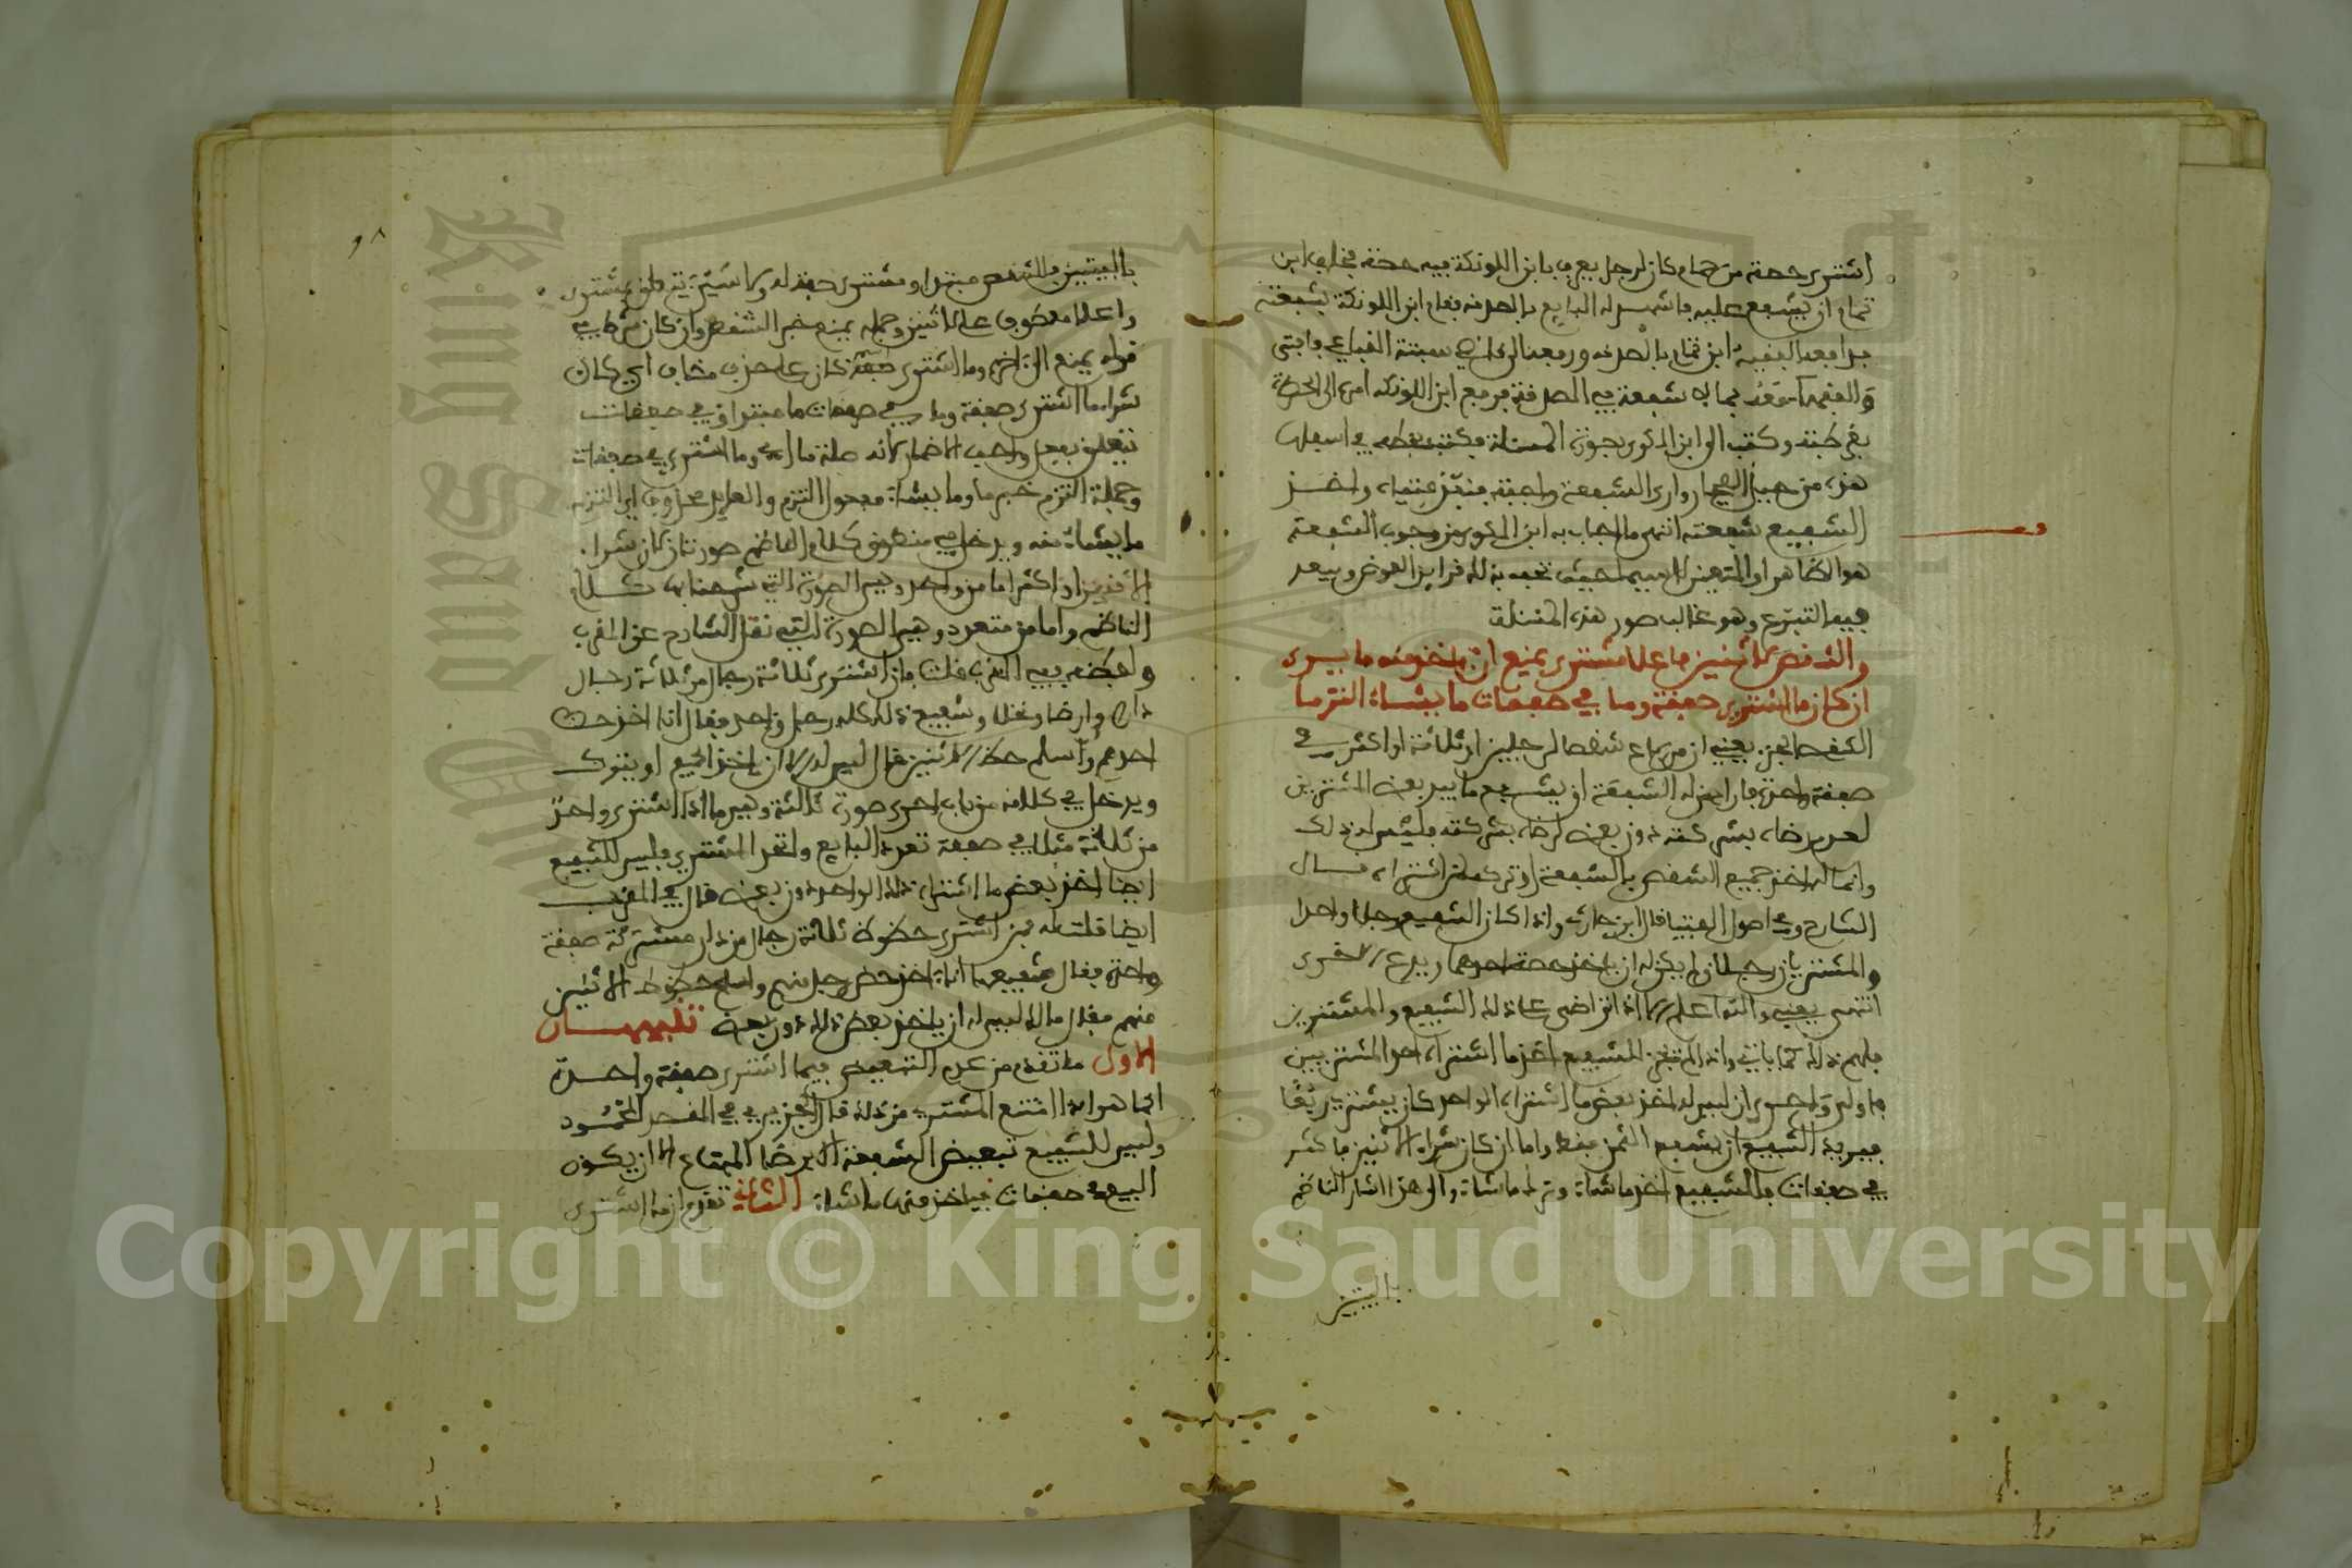 اشترى حصة من حمام كان لرجل يعرف بابن اللونكة فيه حصة فخاف ابن
تمام ان يشفع عليه فاشهد له البايع بالصدقة فقام ابن اللونكة بشفعته
فدافعه الفقيه ابن تمام بالصدقة ورفعه الى سبتة
والفقهاء بما لا شفعة فيه الصدقة فرفع ابن اللونكة امره الى الحضرة
بقرطبة وكتب الى ابن المكوي بصورة المسئلة فكتب بخطه في اسفلها
هذه من حيل الفجار وارى الشفعة واجبة واخذ
الشفيع شفعته انتهى ما اجاب به ابن المكوي من وجوب الشفعة
هو الظاهر او المتعين لا سيما حيث تحف بذلك قراين العوض ويبعد
فيها التبرع وهو غالب صور هذه المسئلة
والشقص لاثنين فاعلا مشترى يمنع ان ياخذ منه ما يرى
ان كان ما اشترى صفقة وما في صفقات ما يشاء التزما
الشقص الجزء يعني ان من باع شقصا لرجلين او ثلاثة او اكثر في
صفقة واحدة فاراد من له الشفعة ان يشفع ما بيد بعض المشترين
لعدم رضاه بشركته دون بعض لرضاه بشركته فليس له ذلك
وانما له اخذ جميع الشقص بالشفعة او تركه لمن اشتراه قال
الشارح وفي اصول الفتيا قال ابن حارث واذا كان الشفيع رجلا واحدا
والمشتريان رجلان لم يكن له ان ياخذ حصة احدهما ويدع الاخرى
انتهى يعني والله اعلم الا اذا تراضى على ذلك الشفيع والمشترين
فلهم ذلك كما ياتي واذا لم يكن للشفيع اخذ ما اشتراه احد المشتريين
فاولى واحرى ان ليس له اخذ بعض ما اشتراه الواحد كان يشترى ربعا
فيريد الشفيع ان يشفع الثمن فقط واما ان كان شراء الاثنين فاكثر
في صفقات فللشفيع اخذ ما شاء وترك ما شاء والى هذا اشار الناظم
بالبيتين
٩٨
بالبيتين فالشقص مبتدا ومشترى صفة له ولاثنين يتعلق بمشترى
واعلا معطوف على لاثنين وجملة يمنع خبر الشقص وان كان شرط في
قوله يمنع الى اخره وما اشترى صفقة كان على حذف مضاف اي كان
شراء ما اشترى صفقة وما في صفقات ما مبتدا وفي صفقات
يتعلق بفعل واجب الاضمار لانه صلة ما اي وما اشترى في صفقات
وجملة التزم خبر ما وما يشاء مفعول التزم والعايد محذوف اي التزم
ما يشاء منه ويدخل في منطوق كلام الناظم صورتان كان شراء
الاثنين او اكثر اما من واحد وهي الصورة التي شرحنا بها كلام
الناظم واما من متعدد وهي الصورة التي نقل الشارح عن المقرب
ولفظه فيه المقرب قلت فان اشترى ثلاثة رجال من ثلاثة رجال
دارا وارضا ونخلا وشفيع ذلك كله رجل واحد فقال انا اخذ حظ
احدهم واسلم حظ الاثنين قال ليس له الا ان ياخذ الجميع او يترك
ويدخل في كلامه من باب احرى صورة ثالثة وهي ما اذا اشترى واحد
من ثلاثة مثلا في صفقة تعدد البايع واتحد المشتري فليس للشفيع
ايضا اخذ بعض ما اشتراه ذلك الواحد دون بعض قال في المقرب
ايضا قلت له فمن اشترى حظوظ ثلاثة رجال من دار مشتركة صفقة
واحدة فقال شفيعها انا اخذ حظ رجل منهم واسلم حظوظ الاثنين
منهم فقال مالك ليس له ان ياخذ بعض ذلك دون بعض تنبيهان
الاول ما تقدم من عدم التبعيض فيما اشترى صفقة واحدة
انما هو اذا امتنع المشتري من ذلك قال الجزيري في المقصد المحمود
وليس للشفيع تبعيض الشفعة الا برضا المبتاع الا ان يكون
البيع في صفقات فياخذ منها ما شاء الثاني تقدم ان ما اشترى
Copyright © King Saud University
King Saud University